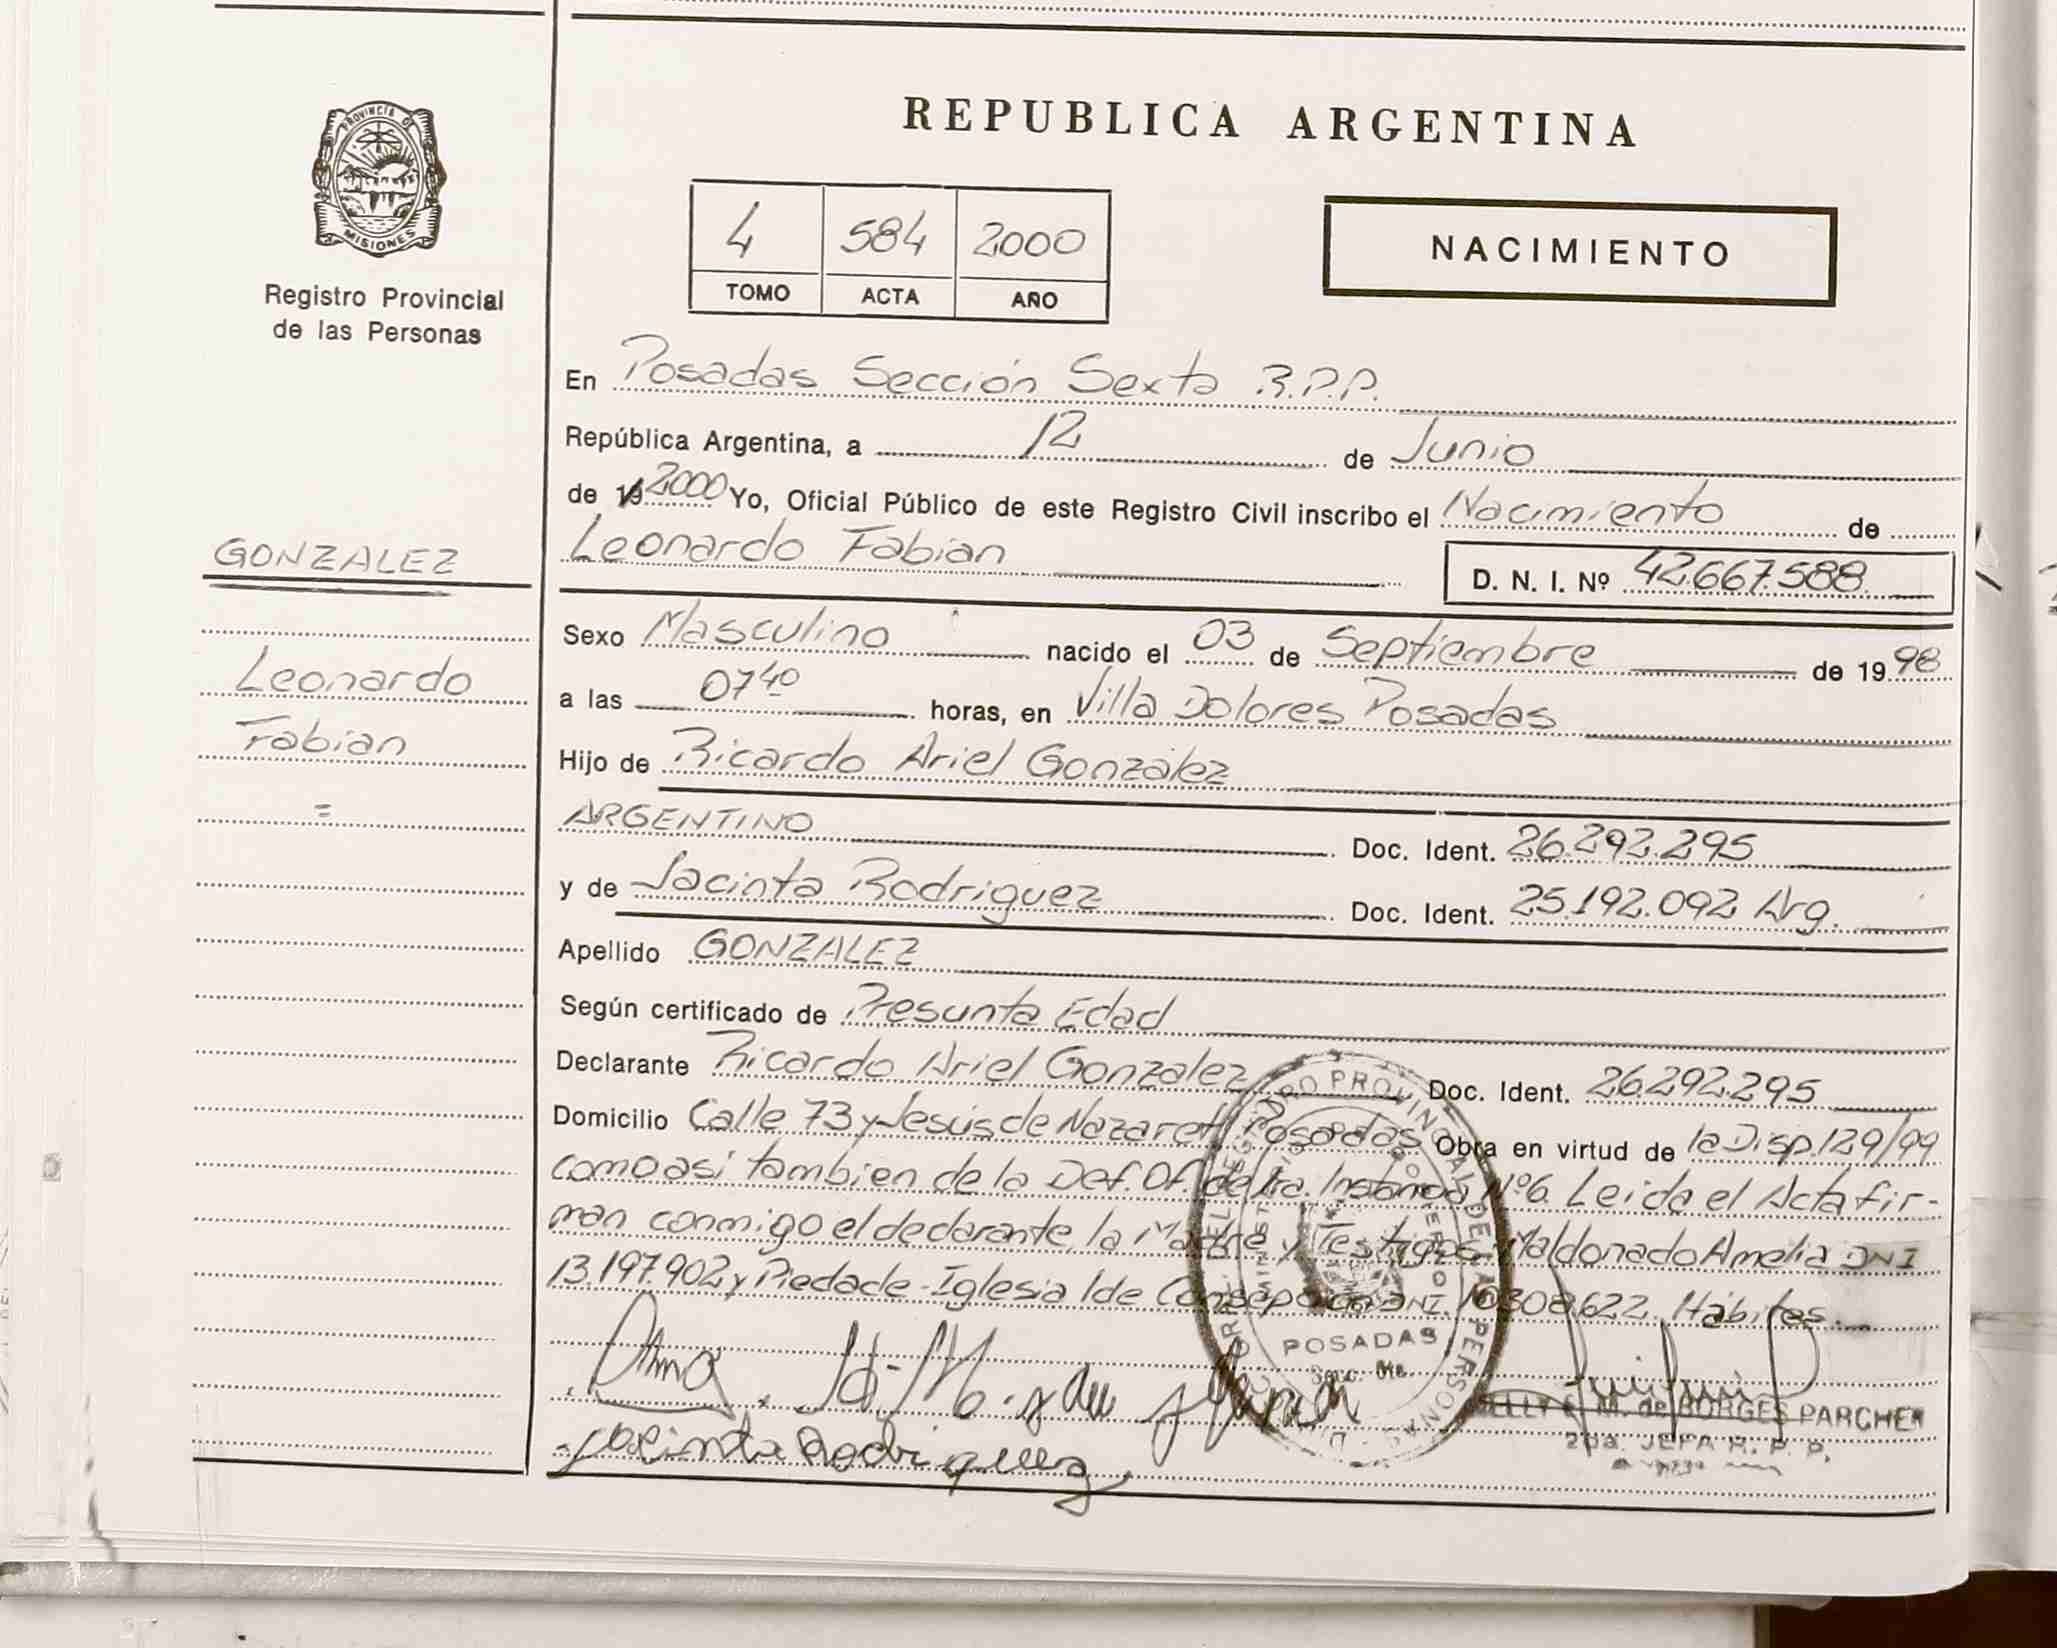 REPUBLICA ARGENTINA
PROVINCIA DE
MISIONES
Registro Provincial
de las Personas
4 584 2000
TOMO ACTA AÑO
NACIMIENTO
En Posadas Sección Sexta R.P.P.
República Argentina, a 12 de Junio
de 19 2000 Yo, Oficial Público de este Registro Civil inscribo el Nacimiento de
Leonardo Fabian D. N. I. Nº 42.667.588
GONZALEZ
Leonardo
Fabian
=
Sexo Masculino nacido el 03 de Septiembre de 1998
a las 07 40 horas, en Villa Dolores Posadas
Hijo de Ricardo Ariel González
ARGENTINO Doc. Ident. 26.292.295
y de Jacinta Rodriguez Doc. Ident. 25.192.092 Arg.
Apellido GONZALEZ
Según certificado de Presunta Edad
Declarante Ricardo Ariel Gonzalez Doc. Ident. 26.292.295
Domicilio Calle 73 y Jesús de Nazaret Posadas Obra en virtud de la Disp. 129/99
como asi tambien de la Def. Of. de 1ra. Instancia Nº6. Leida el Acta fir-
man conmigo el declarante, la Madre y Testigos Maldonado Amelia DNI
13.197.902 y Piedade Iglesia de DNI. Hábiles.
POSADAS
Secc. 6ta
Jacinta Rodriguez
M. de BORGES PARCHEN
2da. JEFA R. P. P.